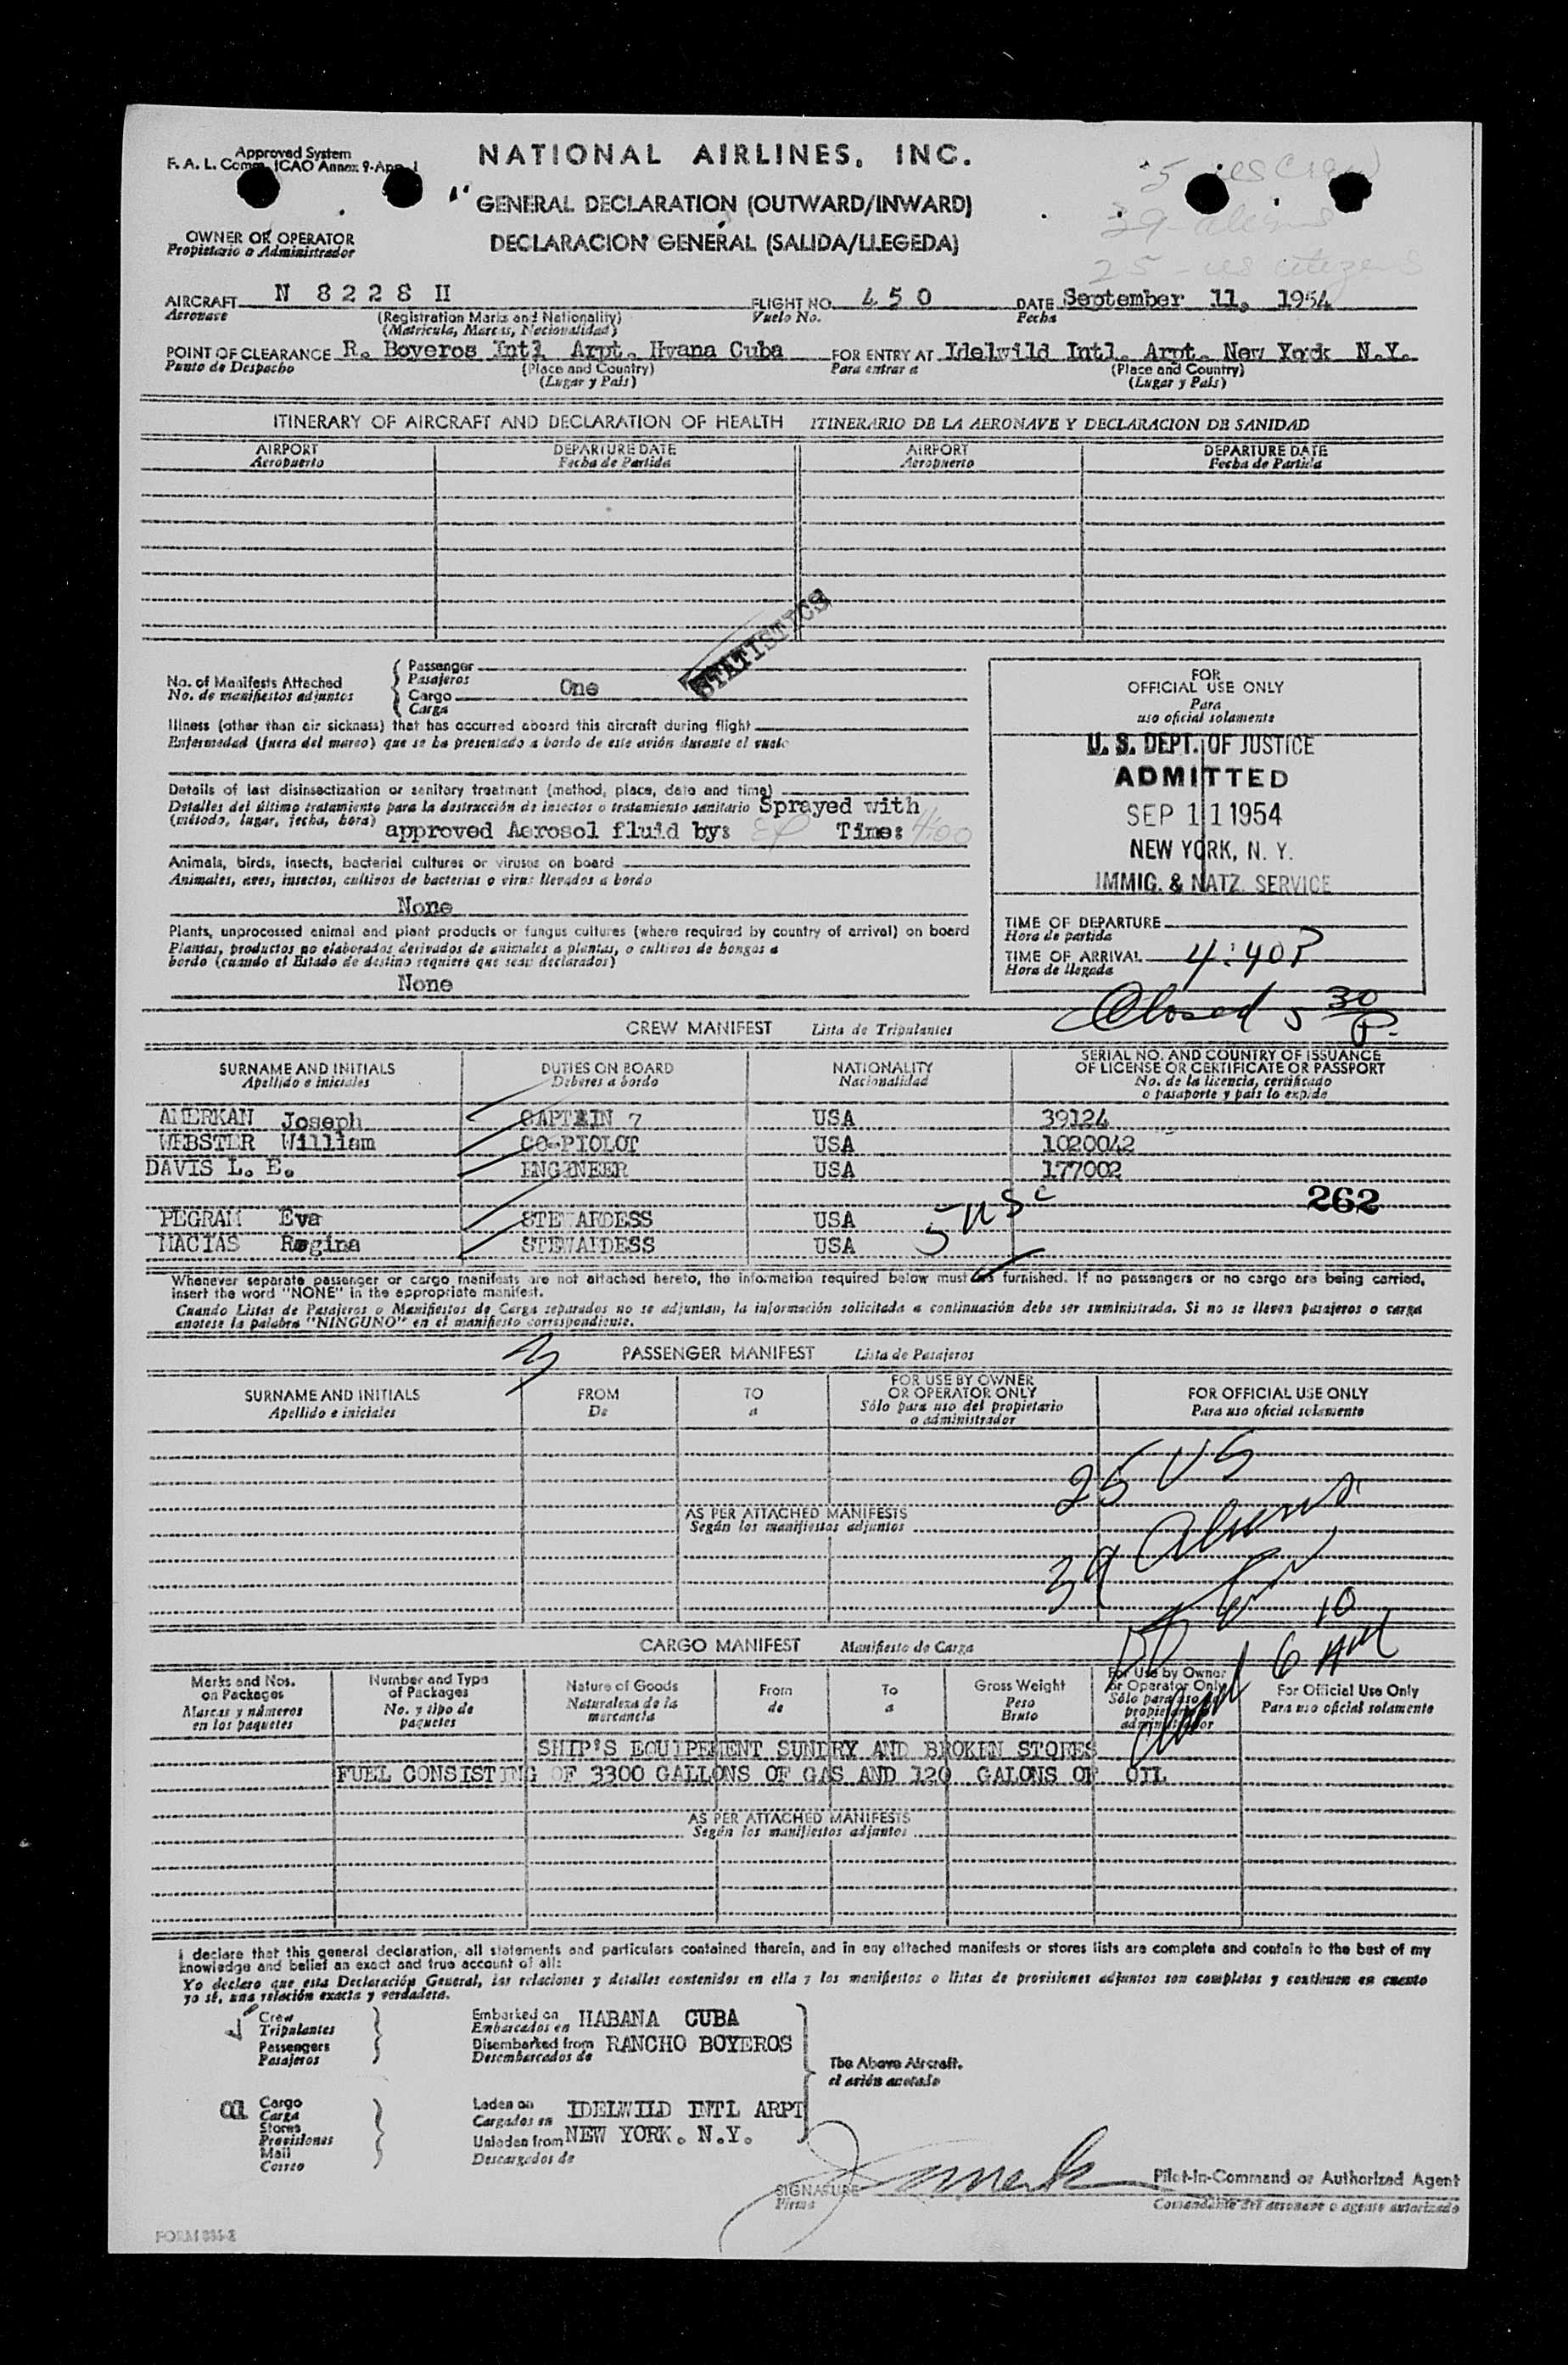 Approved System
F. A. L. Comm. ICAO Annex 9-App. 1
NATIONAL AIRLINES, INC.
5 us crew
GENERAL DECLARATION (OUTWARD/INWARD)
39 aliens
OWNER OR OPERATOR
Propietario o Administrador
DECLARACION GENERAL (SALIDA/LLEGEDA)
25 - us citizens
AIRCRAFT N 8 2 2 8 H FLIGHT NO. 4 5 0 DATE September 11, 1954
Aeronave (Registration Marks and Nationality) Vuelo No. Fecha
(Matricula, Marcas, Nacionalidad)
POINT OF CLEARANCE R. Boyeros Intl Arpt. Hvana Cuba FOR ENTRY AT Idelwild Intl. Arpt. New York N.Y.
Punto de Despacho (Place and Country) Para entrar a (Place and Country)
(Lugar y Pais) (Lugar y Pais)
ITINERARY OF AIRCRAFT AND DECLARATION OF HEALTH ITINERARIO DE LA AERONAVE Y DECLARACION DE SANIDAD
AIRPORT DEPARTURE DATE AIRPORT DEPARTURE DATE
Aeropuerto Fecha de Partida Aeropuerto Fecha de Partida
STATISTICS
No. of Manifests Attached
No. de manifiestos adjuntos
Passenger
Pasajeros
Cargo One
Carga
Illness (other than air sickness) that has occurred aboard this aircraft during flight
Enfermedad (fuera del mareo) que se ha presentado a bordo de este avión durante el vuelo
Details of last disinsectization or sanitary treatment (method, place, date and time)
Detalles del último tratamiento para la destrucción de insectos o tratamiento sanitario Sprayed with
(método, lugar, fecha, hora) approved Aerosol fluid by: Time: 4:00
Animals, birds, insects, bacterial cultures or viruses on board
Animales, aves, insectos, cultivos de bacterias o virus llevados a bordo
None
Plants, unprocessed animal and plant products or fungus cultures (where required by country of arrival) on board
Plantas, productos no elaborados derivados de animales a plantas, o cultivos de hongos a
bordo (cuando el Estado de destino requiere que sean declarados)
None
FOR
OFFICIAL USE ONLY
Para
uso oficial solamente
U. S. DEPT. OF JUSTICE
ADMITTED
SEP 11 1954
NEW YORK, N. Y.
IMMIG. & NATZ. SERVICE
TIME OF DEPARTURE
Hora de partida
TIME OF ARRIVAL 4:40P
Hora de llegada
Closed 5 30 P.
CREW MANIFEST Lista de Tripulantes
SURNAME AND INITIALS DUTIES ON BOARD NATIONALITY SERIAL NO. AND COUNTRY OF ISSUANCE
Apellido e iniciales Deberes a bordo Nacionalidad OF LICENSE OR CERTIFICATE OR PASSPORT
No. de la licencia, certificado
o pasaporte y pais lo expide
AMERKAN Joseph CAPTAIN 7 USA 39124
WEBSTER William CO-PIOLOT USA 1020042
DAVIS L. E. ENGINEER USA 177002
262
PEGRAM Eva STEWARDESS USA 5 USC
MACIAS Regina STEWARDESS USA
Whenever separate passenger or cargo manifests are not attached hereto, the information required below must be furnished. If no passengers or no cargo are being carried,
insert the word "NONE" in the appropriate manifest.
Cuando Listas de Pasajeros o Manifiestos de Carga separados no se adjuntan, la información solicitada a continuación debe ser suministrada. Si no se llevan pasajeros o carga
anotese la palabra "NINGUNO" en el manifiesto correspondiente.
3
PASSENGER MANIFEST Lista de Pasajeros
SURNAME AND INITIALS FROM TO FOR USE BY OWNER FOR OFFICIAL USE ONLY
Apellido e iniciales De a OR OPERATOR ONLY Para uso oficial solamente
Sólo para uso del propietario
o administrador
25 US
AS PER ATTACHED MANIFESTS
Según los manifiestos adjuntos
39 Aliens
10
6 AM
CARGO MANIFEST Manifiesto de Carga
Marks and Nos. Number and Type Nature of Goods From To Gross Weight For Use by Owner
on Packages of Packages Naturaleza de la de a Peso or Operator Only For Official Use Only
Marcas y números No. y tipo de mercancia Bruto Sólo para uso Para uso oficial solamente
en los paquetes paquetes propietario
administrador
SHIP'S EQUIPEMENT SUNDRY AND BROKEN STORES
FUEL CONSISTING OF 3300 GALLONS OF GAS AND 120 GALONS OF OIL
AS PER ATTACHED MANIFESTS
Según los manifiestos adjuntos
I declare that this general declaration, all statements and particulars contained therein, and in any attached manifests or stores lists are complete and contain to the best of my
knowledge and belief an exact and true account of all:
Yo declaro que esta Declaración General, las relaciones y detalles contenidos en ella y los manifiestos o listas de provisiones adjuntos son completos y contienen en cuanto
yo sé, una relación exacta y verdadera.
Crew
Tripulantes
Passengers
Pasajeros
Embarked on HABANA CUBA
Embarcados en
Disembarked from RANCHO BOYEROS
Desembarcados de
The Above Aircraft.
el avión anotado
Cargo
Carga
Stores
Provisiones
Mail
Correo
Laden on IDELWILD INTL ARPT
Cargados en
Unladen from NEW YORK. N.Y.
Descargados de
SIGNATURE Pilot-In-Command or Authorized Agent
Firma Comandante del aeronave o agente autorizado
FORM 035-2